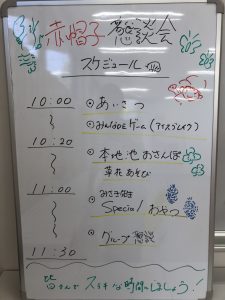 赤帽子 懇談会
スケジュール
10:00
◎ あいさつ
◎ みんなのゲーム (アイスブレイク)
10:20
◎ 本地池おさんぽ
草花あそび
11:00
Special おやつ
◎ グループ懇談
11:30
皆さんでステキな時間にしましょう!